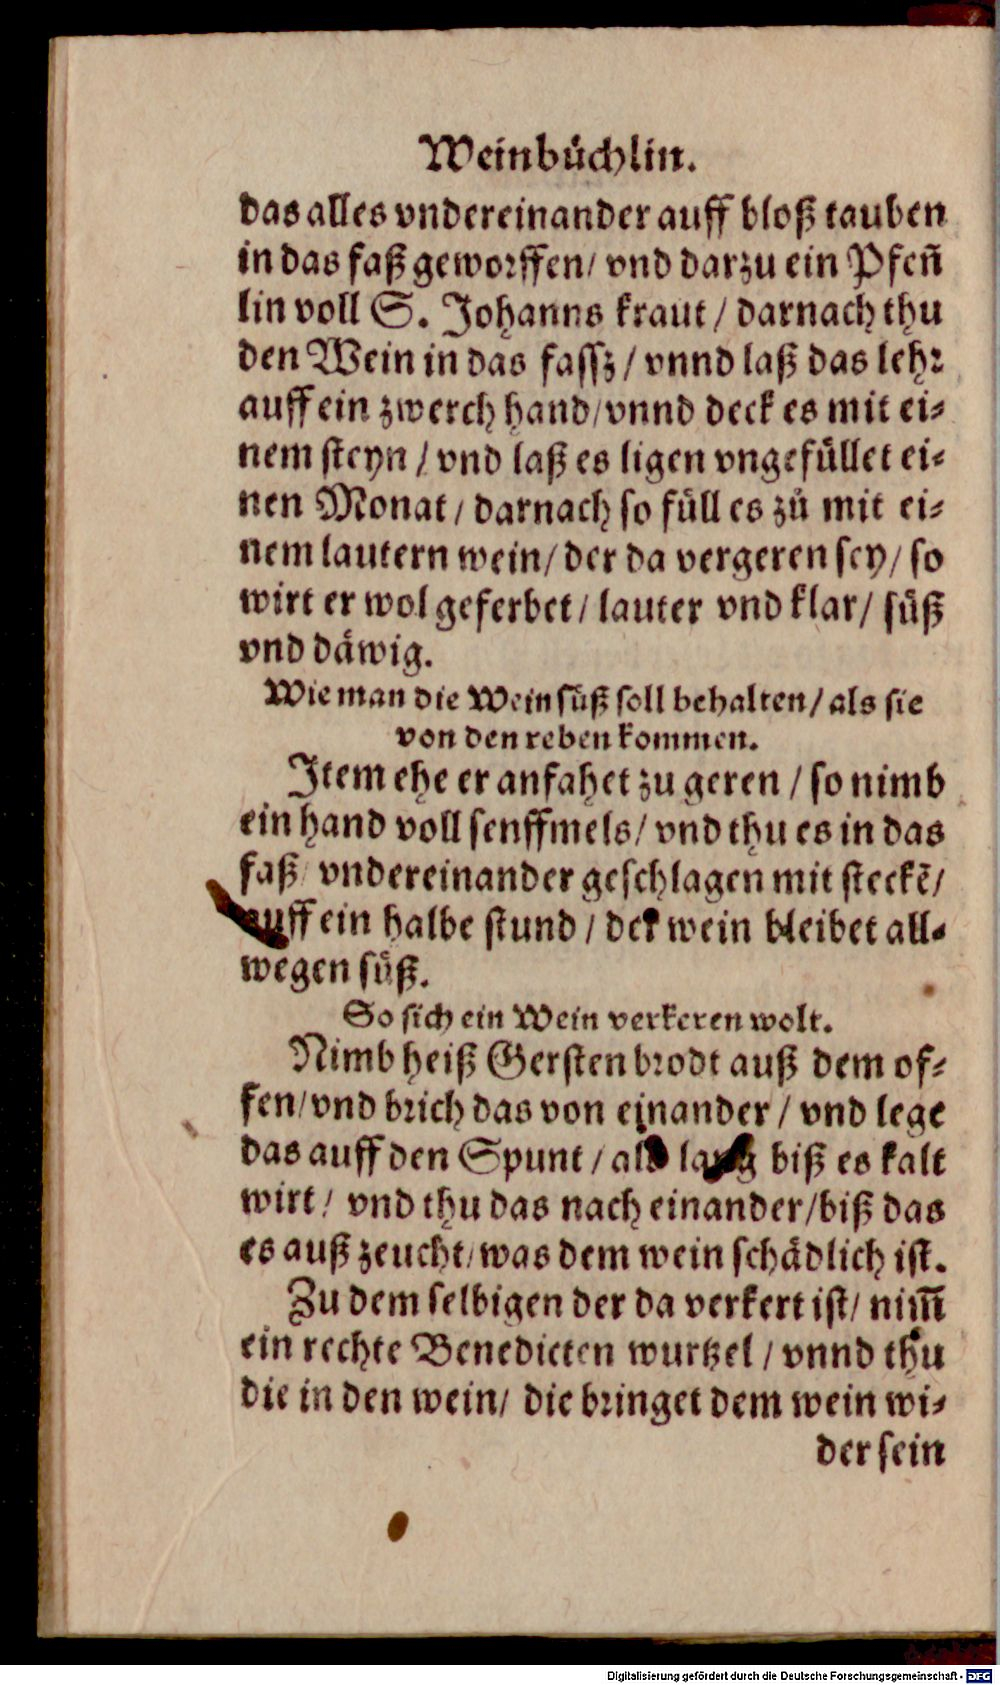 Weinbuͤchlin.
das alles vndereinander auff bloß tauben
in das faß geworffen/ vnd darzu ein Pfen̄
lin voll S. Johanns kraut / darnach thu
den Wein in das fassz / vnnd laß das lehr
auff ein zwerch hand/vnnd deck es mit ei⸗
nem steyn / vnd laß es ligen vngefuͤllet ei⸗
nen Monat / darnach so fuͤll es zuͦ mit ei⸗
nem lautern wein/ der da vergeren sey/ so
wirt er wol geferbet / lauter vnd klar/ suͤß
vnd daͤwig.
Wie man die Wein suͤß soll behalten/ als sie
von den reben kommen.
Item ehe er anfahet zu geren / so nimb
ein hand voll senffmels/ vnd thu es in das
faß/ vndereinander geschlagen mit steckē/
auff ein halbe stund / der wein bleibet all⸗
wegen suͤß.
So sich ein Wein verkeren wolt.
Nimb heiß Gersten brodt auß dem of⸗
fen/vnd brich das von einander / vnd lege
das auff den Spunt / als lang biß es kalt
wirt/ vnd thu das nach einander/biß das
es auß zeucht/was dem wein schaͤdlich ist.
Zu dem selbigen der da verkert ist/ nim̄
ein rechte Benedicten wurtzel / vnnd thu
die in den wein/ die bringet dem wein wi⸗
der sein
Digitalisierung gefördert durch die Deutsche Forschungsgemeinschaft - DFG